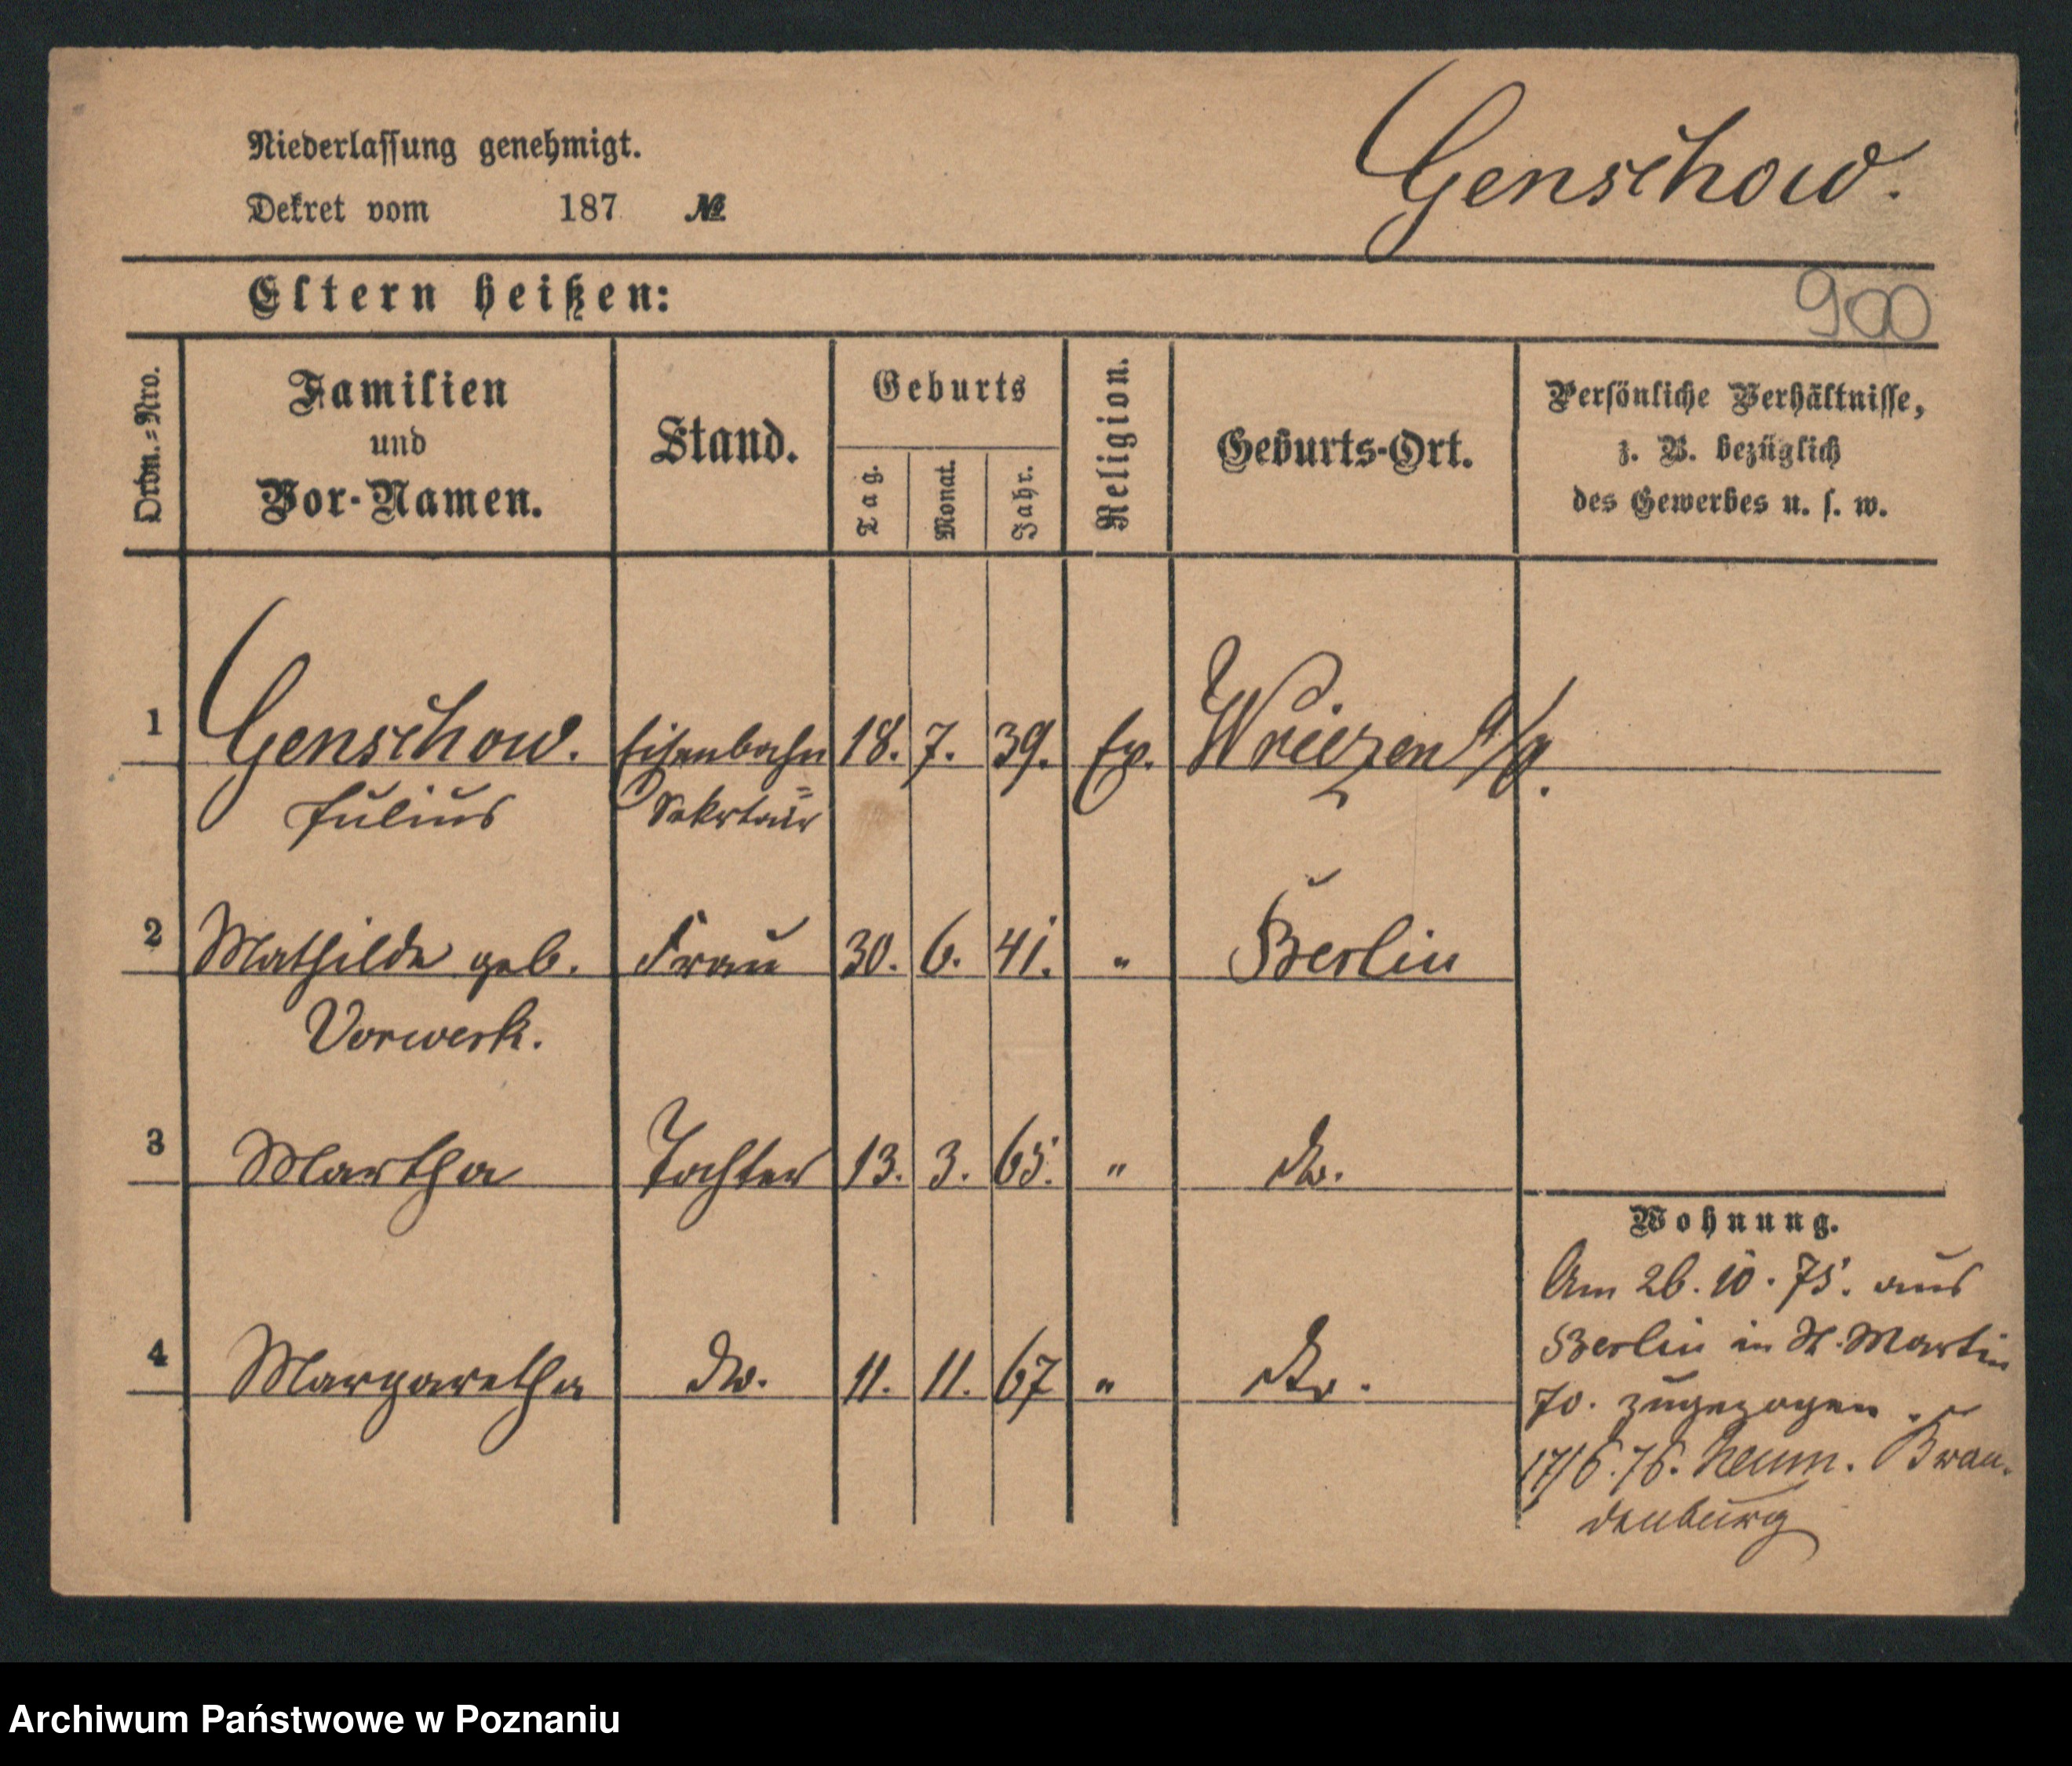 Niederlassung genehmigt.
Dekret vom 187 №
Genschow.
Eltern heißen:
900
Ordn.=Nro.
Familien
und
Vor-Namen.
Stand.
Geburts
Tag.
Monat.
Jahr.
Religion.
Geburts-Ort.
Persönliche Verhältnisse,
z. B. bezüglich
des Gewerbes u. s. w.
1 Genschow. Eisenbahn 18. 7. 39. Ev. Wriezen a/O.
Julius Sekretair
2 Mathilde geb. Frau 30. 6. 41. " Berlin
Vorwerk.
3 Martha Tochter 13. 3. 65. " do.
4 Margaretha do. 11. 11. 67 " do.
Wohnung.
Am 26. 10. 75. aus
Berlin in St. Martin
70. zugezogen.
17/6. 76. Bran-
denburg
Archiwum Państwowe w Poznaniu